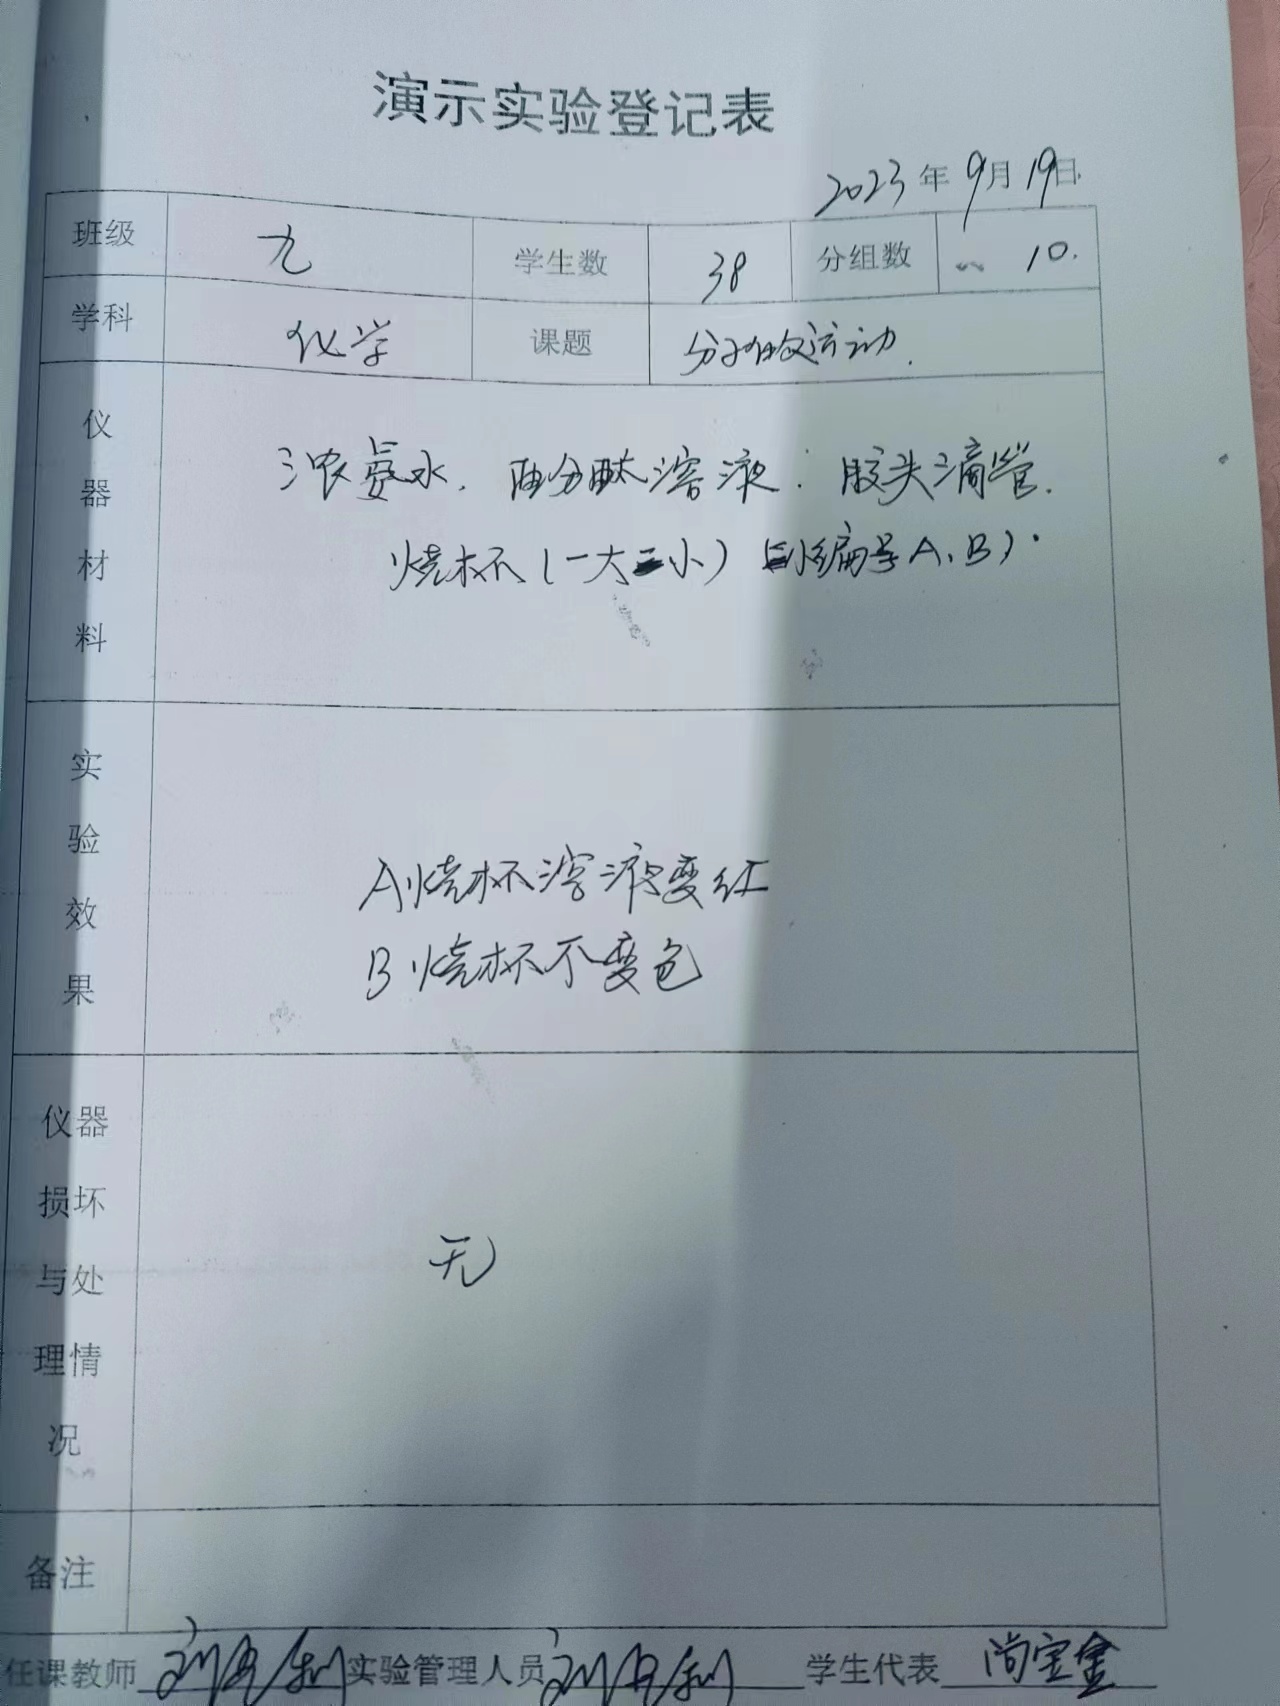 演示实验登记表
2023年9月19日
班级 九 学生数 38 分组数 10.
学科 化学 课题 分子的运动.
仪器材料 浓氨水. 酚酞溶液. 胶头滴管.
烧杯(一大二小) 编号A、B)
实验效果 A烧杯溶液变红
B烧杯不变色
仪器损坏与处理情况 无
备注
任课教师 实验管理人员 学生代表 尚宝金